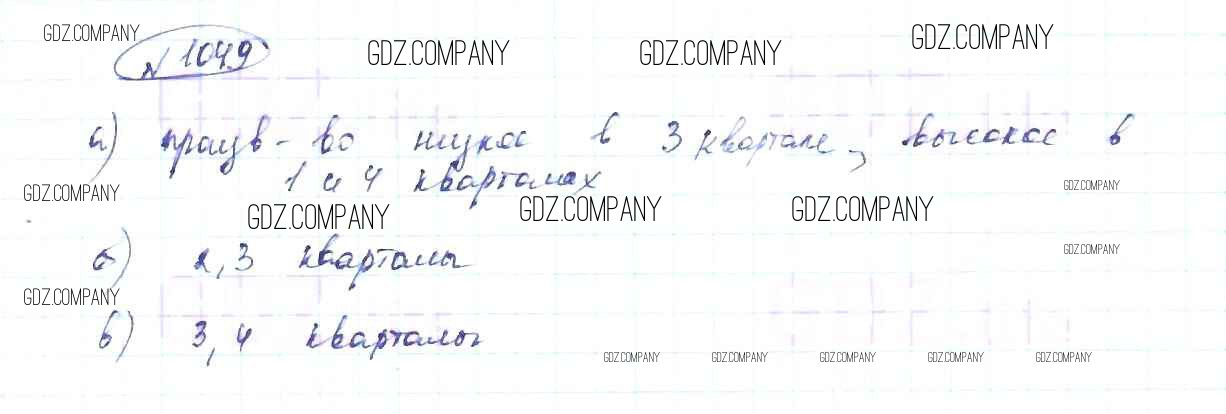 GDZ.COMPANY
№ 1049
GDZ.COMPANY GDZ.COMPANY GDZ.COMPANY
а) произв-во низкое в 3 квартале, высокое в
1 и 4 кварталах
GDZ.COMPANY GDZ.COMPANY
GDZ.COMPANY GDZ.COMPANY GDZ.COMPANY
б) 2, 3 кварталы
GDZ.COMPANY
GDZ.COMPANY
в) 3, 4 кварталы
GDZ.COMPANY GDZ.COMPANY GDZ.COMPANY GDZ.COMPANY GDZ.COMPANY